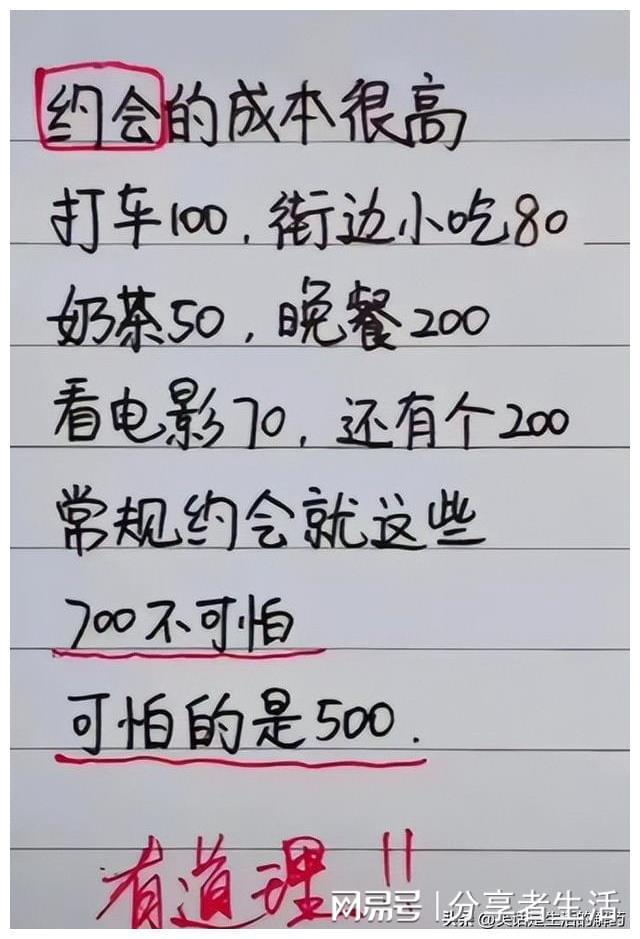 约会的成本很高
打车100,街边小吃80
奶茶50,晚餐200
看电影70,还有个200
常规约会就这些
700不可怕
可怕的是500.
有道理!!
网易号 | 分享者生活
头条 @笑话是生活的解药